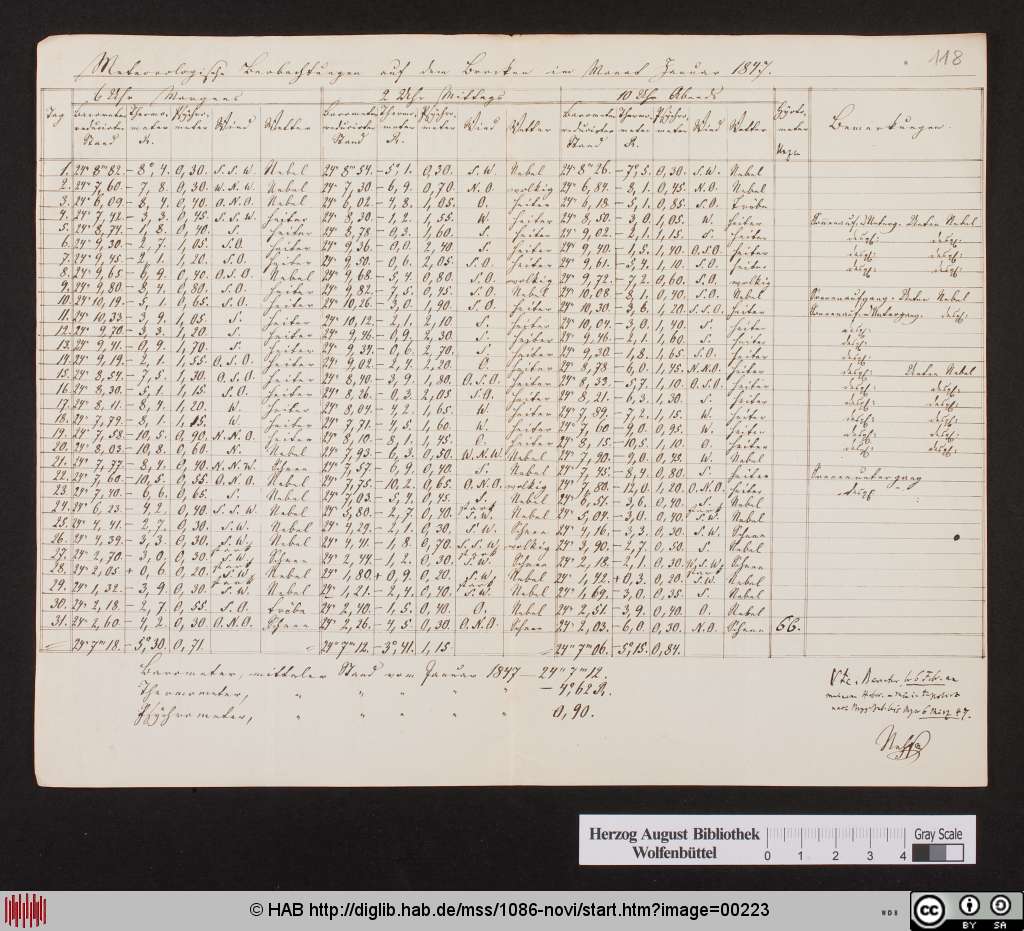 118
Meteorologische Beobachtungen auf dem Brocken im Monat Januar 1847.
6 Uhr Morgens 2 Uhr Mittags 10 Uhr Abends
Tag Barometer reducirter Stand Thermometer R. Psychrometer Wind Wetter Barometer reducirter Stand Thermometer R. Psychrometer Wind Wetter Barometer reducirter Stand Thermometer R. Psychrometer Wind Wetter Bemerkungen.
1. 24" 8"' 82. – 8°, 4. 0,30. S.S.W. Nebel 24" 8"' 54. – 5°, 1. 0,30. S.W. Nebel 24" 8"' 26. – 7°, 5. 0,30. S.W. Nebel
2. 24" 7,60. – 7,8. 0,30. W.N.W. Nebel 24" 7,30 – 6,9. 0,70. N.O. wolkig 24" 6,84. – 8,1. 0,45. N.O. Nebel
3. 24" 6,09. – 8,4. 0,40. O.N.O. Nebel 24" 6,02. – 4,8. 1,05. O. heiter 24" 6,18. – 5,1. 0,85. S.O. Trübe
4. 24" 7,42. – 3,3. 0,45. S.S.W. heiter 24" 8,30 – 1,2. 1,55. W. heiter 24" 8,50. – 3,0. 1,05. W. heiter
5. 24" 8,74. – 1,8. 0,40. S. heiter 24" 8,78 – 0,3. 1,60. S. heiter 24" 9,02. – 2,1. 1,15. S. heiter
6. 24" 9,30. – 2,7. 1,05. S.O. heiter 24" 9,36. – 0,0. 2,40. S. heiter 24" 9,40. – 1,5. 1,40. O.S.O. heiter
7. 24" 9,45. – 2,1. 1,20. S.O. heiter 24" 9,50. – 0,6. 2,05. S.O. heiter 24" 9,61. 1,10. S.O. heiter
8. 24" 9,65 – 6,9. 0,40. O.S.O. Nebel 24" 9,68. – 5,4. 0,80. S.O. wolkig 24" 9,72. – 7,2. 0,60. S.O. wolkig
9. 24" 9,80 0,80. S.O. heiter 24" 9,82. – 7,5. 0,45. S.O. Nebel 24" 10,08. – 8,1. 0,40. S.O. Nebel
10. 24" 10,19. – 5,1. 0,65. S.O. heiter 24" 10,26. – 3,0. 1,90. S.O. heiter 24" 10,30. – 3,6. 1,20. S.S.O. heiter
11. 24" 10,33 – 3,9. 1,05. S. heiter 24" 10,12. – 2,1. 2,10. S. heiter 24" 10,04. – 3,0. 1,40. S. heiter
12. 24" 9,70 – 3,3. 1,20. S. heiter 24" 9,46. – 0,9. 2,30. S. heiter 24" 9,46. – 2,1. 1,60. S. heiter
13. 24" 9,41. – 0,9. 1,70. S. heiter 24" 9,34. – 0,6. 2,70. S. heiter 24" 9,30 – 1,8. 1,65. S.O. heiter
14. 24" 9,19. – 2,1. 1,55. O.S.O. heiter 24" 9,02. – 2,4. 2,20. O. heiter 24" 8,78 – 6,0. 1,45. N.N.O. heiter
15. 24" 8,54. – 7,5. 1,30. O.S.O. heiter 24" 8,40. – 3,9. 1,80. O.S.O. heiter 24" 8,33. – 5,7. 1,10. O.S.O. heiter
16. 24" 8,30. – 5,1. 1,15. S.O. heiter 24" 8,26. – 0,3. 2,05 S.O. heiter 24" 8,21. – 6,3. 1,30. S. heiter
17. 24" 8,11. – 8,4. 1,20. W. heiter 24" 8,04. – 4,2. 1,65. W. heiter 24" 7,89. – 7,2. 1,15. W. heiter
18. 24" 7,79. – 8,1. W. heiter 24" 7,71. – 4,5. 1,60. W. heiter 24" 7,60 – 9,0. 0,95. W. heiter
19. 24" 7,58. – 10,5. 0,90. N.N.O. heiter 24" 8,10. – 8,1. 1,45. O. heiter 24" 8,15 – 10,5. 1,10. O. heiter
20. 24" 8,03. – 10,8. 0,60. N. Nebel 24" 7,93. – 6,3. 0,50. W.N.W. Nebel 24" 7,90. – 9,0. W. Nebel
21. 24" 7,77. – 8,4. 0,40. N.N.W. Schnee 24" 7,57. – 6,9. 0,40. S. Nebel 24" 7,45. – 8,4. 0,80. S. heiter
22. 24" 7,60. – 10,5. 0,55. O.N.O. Nebel 24" 7,75. – 10,2. 0,65. O.N.O. wolkig 24" 7,80. – 12,0. 1,20. O.N.O. heiter
23. 24" 7,40. – 6,6. 0,65. S. Nebel 24" 7,03. – 5,4. 0,45. S. Nebel 24" 6,57. – 3,6. 0,40. S. Nebel
24. 24" 6,23. – 4,2. 0,40. S.S.W. Nebel 24" 5,80. – 2,7. 0,40. S.W. Nebel 24" 5,04. – 3,0. 0,40. S.W. Nebel
25. 24" 4,41. – 2,7. 0,30. S.W. Nebel 24" 4,29. – 2,1. 0,30. S.W. Schnee 24" 4,16. – 3,3. 0,30. S.W. Schnee
26. 24" 4,39. – 3,3. 0,30. S.W. Nebel 24" 4,41. – 1,8. 0,70. S.S.W. wolkig 24" 3,90. – 2,7. 0,50. S. Nebel
27. 24" 2,70. – 3,0. 0,30. S.W. Schnee 24" 2,44. – 1,2. 0,30. S.W. Schnee 24" 2,18. – 2,1. 0,30. Schnee
28. 24" 2,05 + 0,6. 0,20. S.W. Nebel 24" 1,80 + 0,9. 0,20. S.W. Nebel 24" 1,42. + 0,3. 0,20. S.W. Nebel
29. 24" 1,32. – 3,9. 0,30. S.W. Nebel 24" 1,21. – 2,4. 0,40. S.W. Nebel 24" 1,69. – 3,0. 0,35. S. Nebel
30. 24" 2,18. – 2,7. 0,55. S.O. Trübe 24" 2,40. – 1,5. 0,40. O. Nebel 24" 2,51. – 3,9. 0,40. O. Nebel
31. 24" 2,60. – 4,2. 0,30. O.N.O. Schnee 24" 2,26. – 4,5. 0,30. O.N.O. Schnee 24" 2,03. – 6,0. 0,30. N.O. Schnee 66.
24" 7"' 18. – 5°, 30. 0,71. 24" 7"' 12. – 3°, 41. 1,15. 24" 7"' 06. – 5°, 15. 0,84.
Barometer, mittlerer Stand vom Januar 1847 – 24" 7"' 12.
Thermometer, " " " " " – 4°, 62 R.
Psychrometer, " " " " " 0,90.
Herzog August Bibliothek
Wolfenbüttel
0 1 2 3 4
Gray Scale
© HAB http://diglib.hab.de/mss/1086-novi/start.htm?image=00223
WDB
cc BY SA